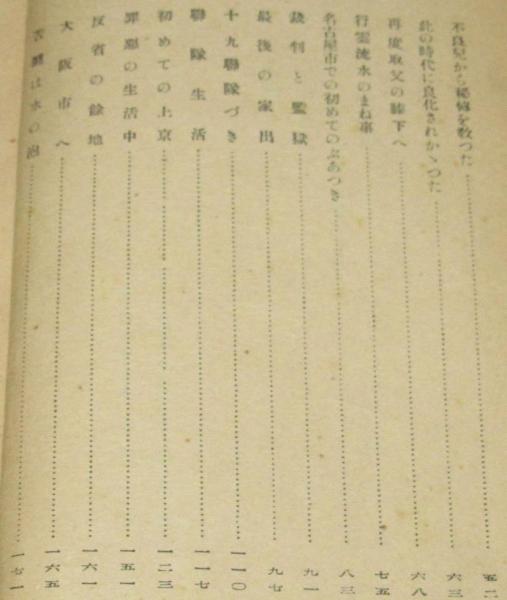 不良兒から秘傳を敎つた……五二
此の時代に良化されかゝつた……六三
再度取父の膝下へ……六八
行雲流水のまね事……七五
名古屋市での初めてのぶあつき……八三
裁判と監獄……九一
最後の家出……九七
十九聯隊づき……一一〇
聯隊生活……一一七
初めての上京……一二三
罪惡の生活中……一五一
反省の餘地……一六一
大阪市へ……一六五
苦鬪は水の泡……一七一